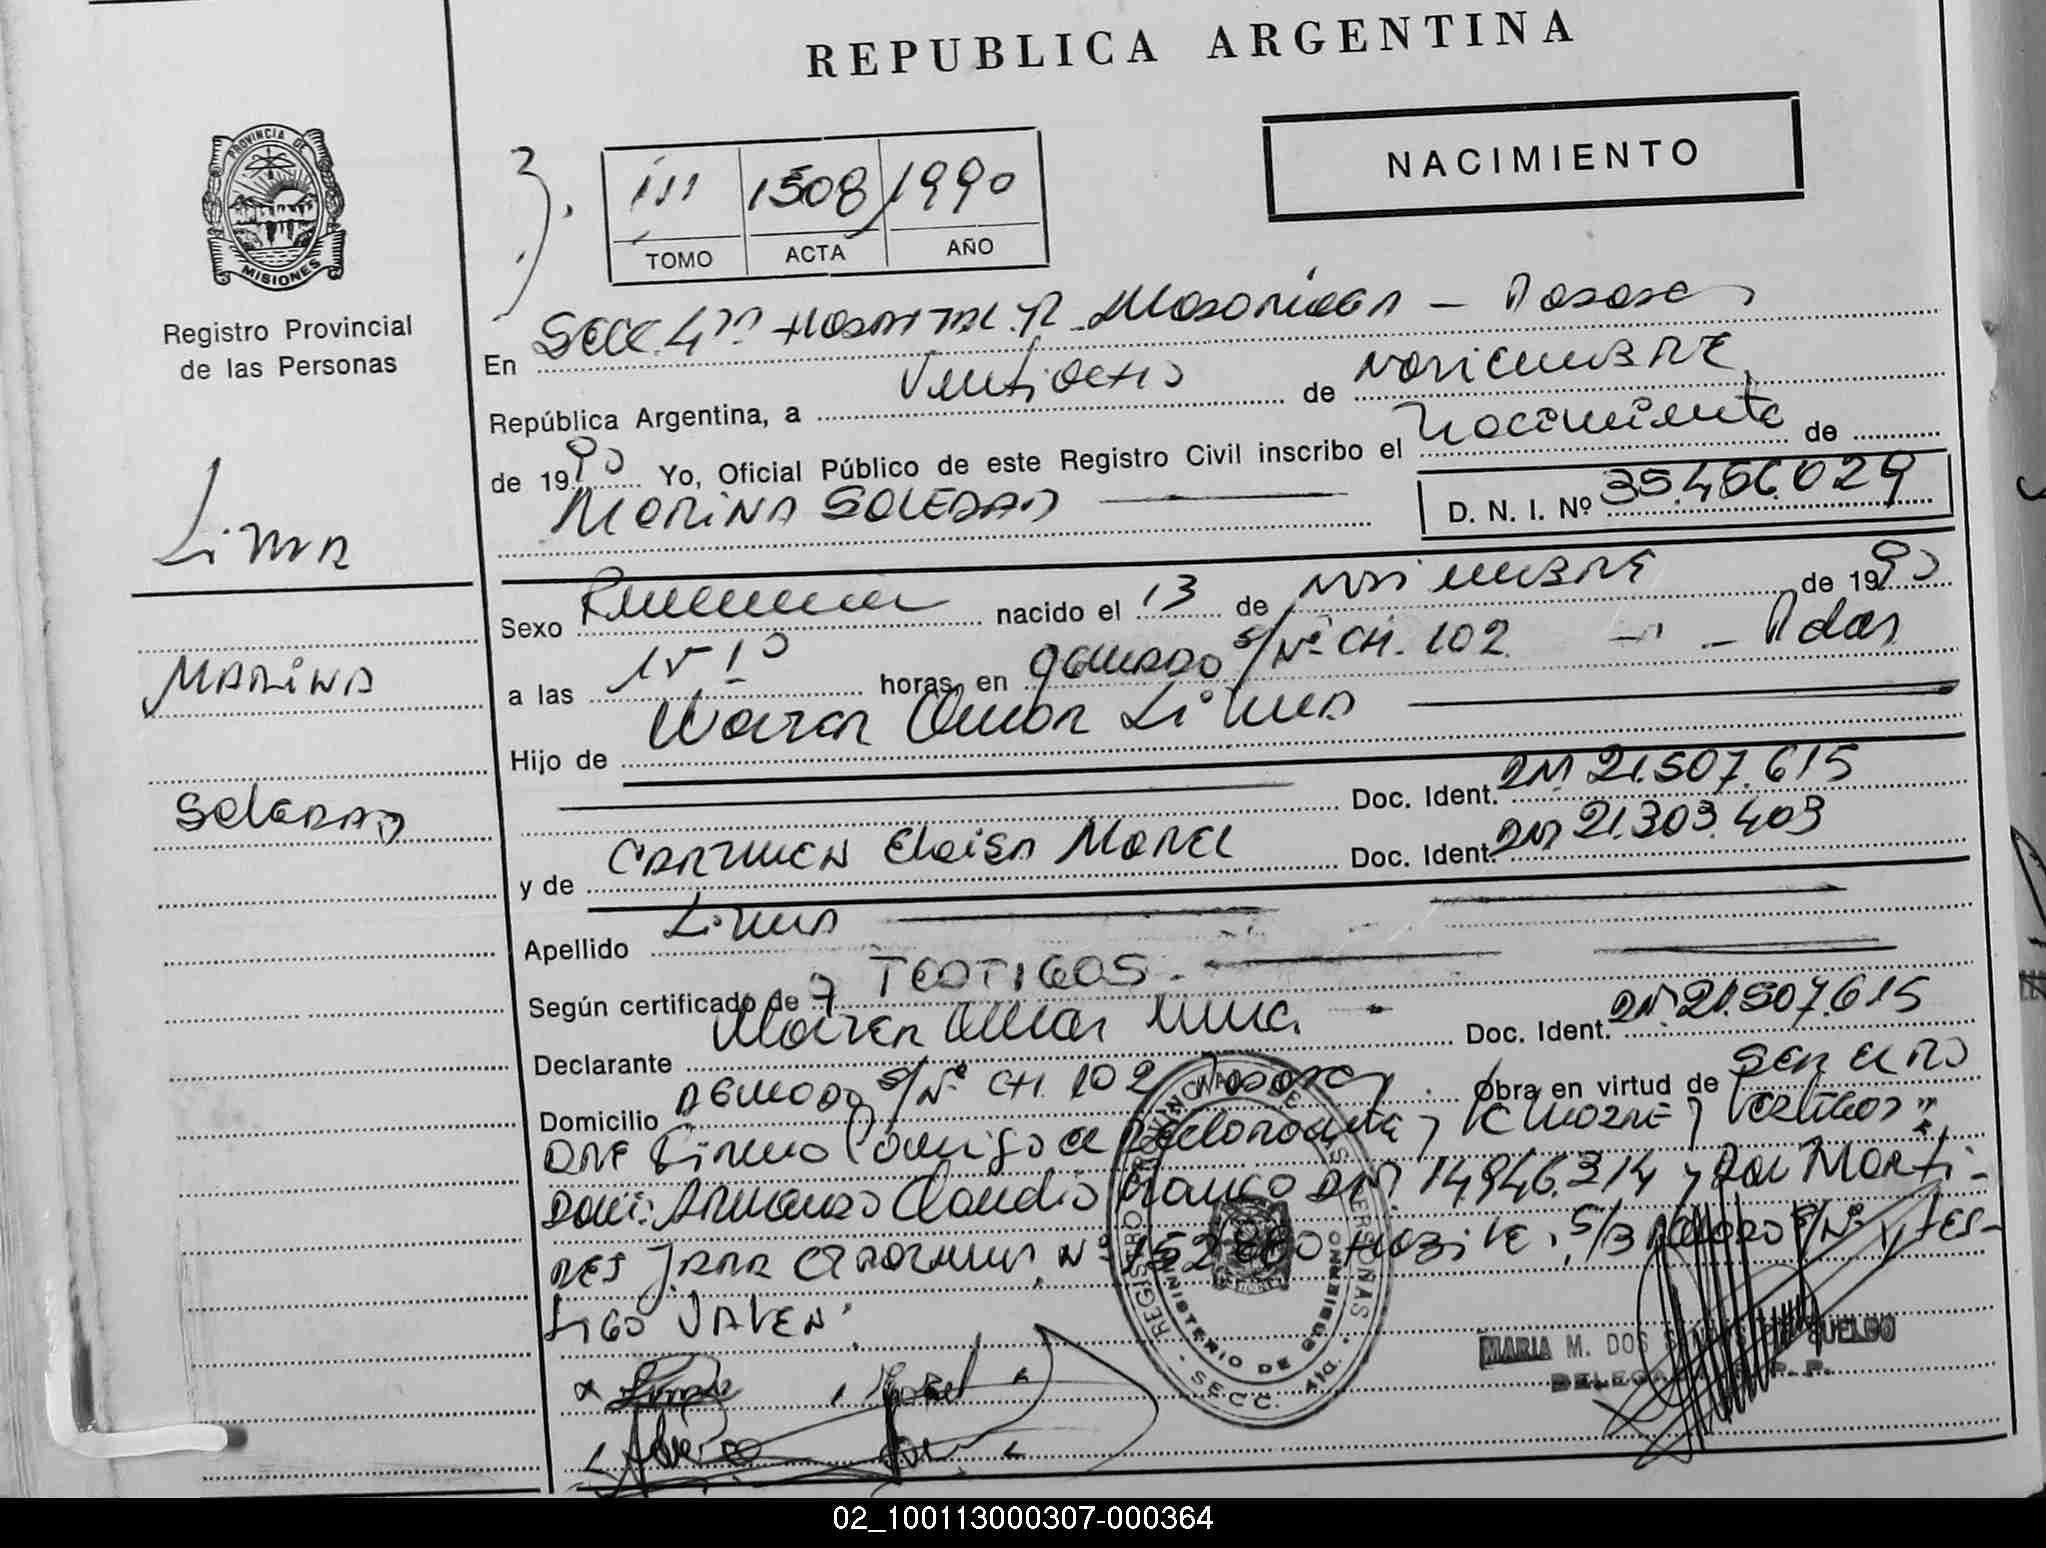 REPUBLICA ARGENTINA
NACIMIENTO
PROVINCIA DE
MISIONES
Registro Provincial
de las Personas
3.
III 1508 1990
TOMO ACTA AÑO
En Secc. 4ta Hospital R. - Posadas
República Argentina, a Veintiocho de noviembre
de 1990 Yo, Oficial Público de este Registro Civil inscribo el Nacimiento de
MARINA SOLEDAD
D. N. I. Nº 35.456.029
Lima
MARINA
SOLEDAD
Sexo Femenino nacido el 13 de noviembre de 1990
a las 15 10 horas, en s/Nº CH. 102 - Pdas
Hijo de Omar Lima
Doc. Ident. DNI 21.507.615
y de CARMEN Eloisa Morel Doc. Ident. DNI 21.303.403
Apellido Lima
Según certificado de TESTIGOS.
Declarante Omar Lima Doc. Ident. DNI 21.507.615
Domicilio s/Nº CH. 102 Posadas. Obra en virtud de ser el P
que firma conmigo el declarante y la madre y testigos:
Armando Claudio Franco DNI 14.946.314 y Marti-
nez Jara Nº 152 s/Nº y tes-
tigo valen.
REGISTRO PROVINCIAL DE LAS PERSONAS
MINISTERIO DE GOBIERNO
SECC. 4ta.
MARIA M. DOS SUELDO
DELEGA R. P.
02_100113000307-000364